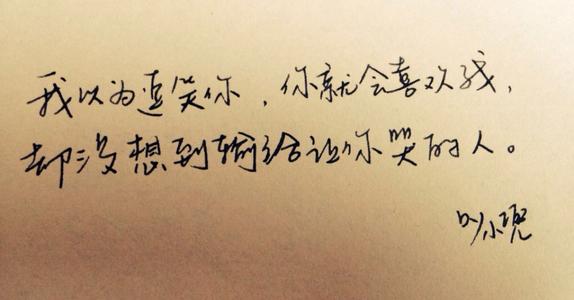 我以为逗笑你，你就会喜欢我，
却没想到输给让你哭的人。